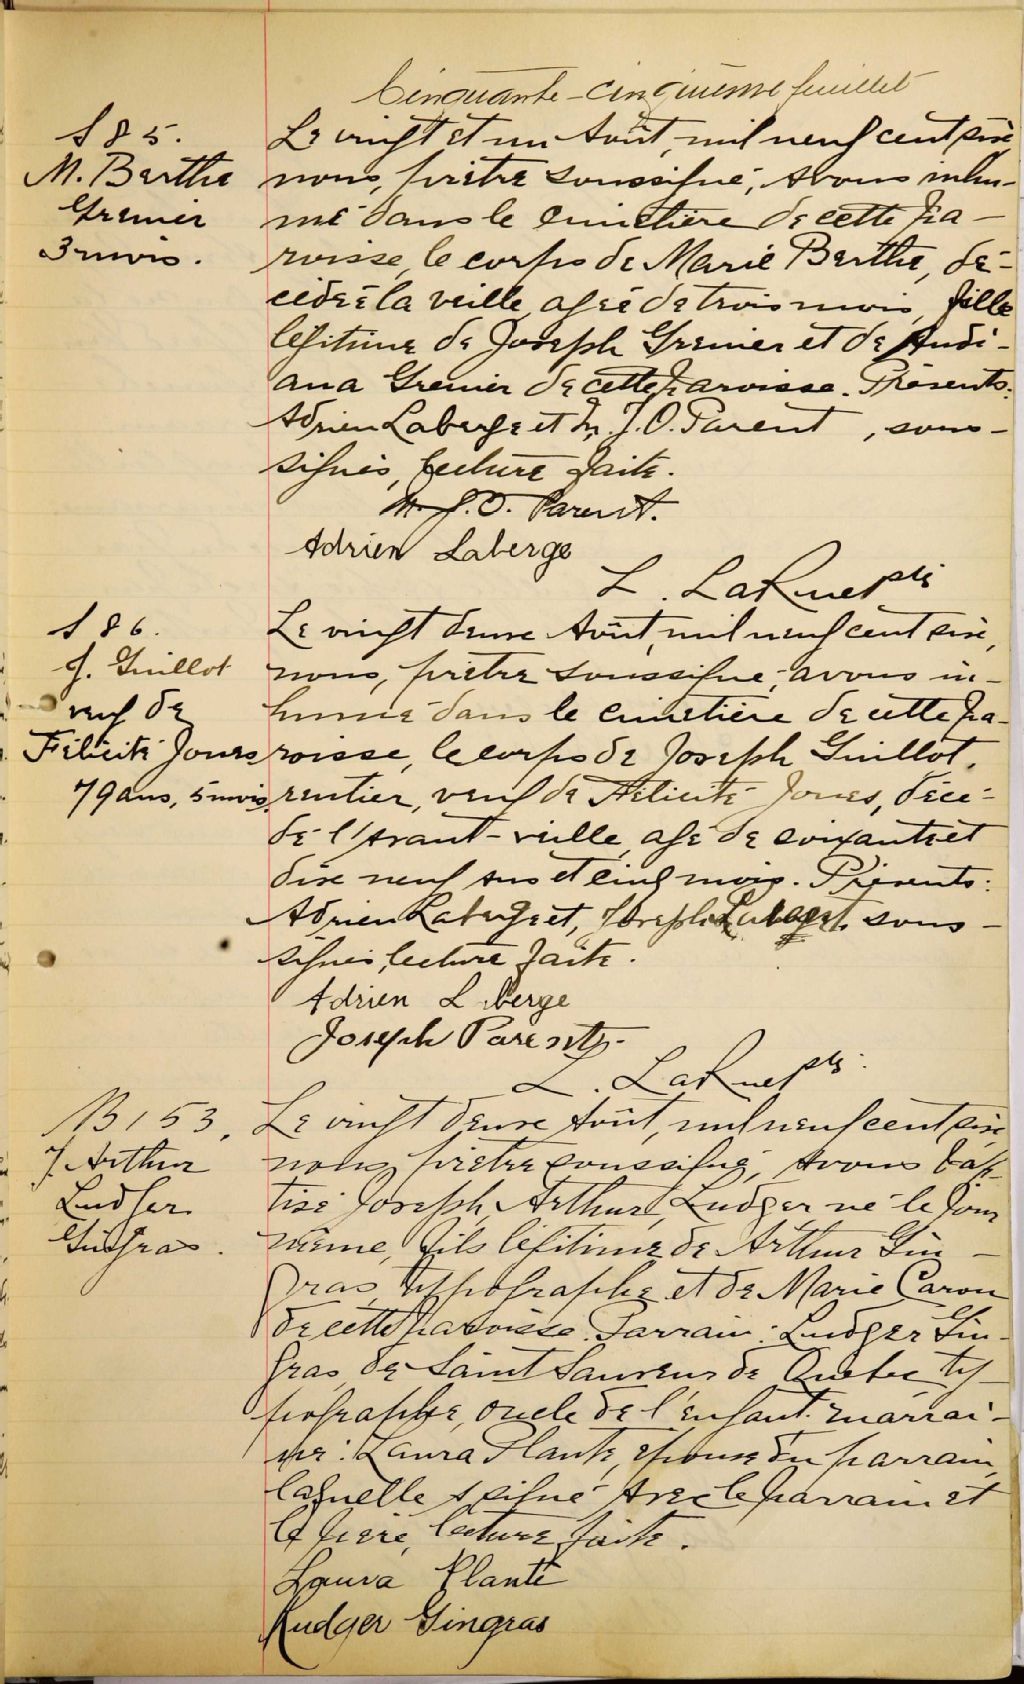 Cinquante-cinquième feuillet
S 85.
M. Berthe
Grenier
3 mois.
Le vingt et un Août, mil neuf cent six,
nous, prêtre soussigné, avons inhu-
mé dans le cimetière de cette pa-
roisse, le corps de Marie Berthe, dé-
cédée la veille, agée de trois mois, fille
légitime de Joseph Grenier et de Audi-
ana Grenier de cette paroisse. Présents:
Adrien Laberge et M. J. O. Parent, sous-
signés, lecture faite.
M. J. O. Parent.
Adrien Laberge
L. LaRue ptre
S 86.
J. Guillot
veuf de
Félicité Jones
79 ans, 5 mois
Le vingt deux Août, mil neuf cent six,
nous, prêtre soussigné, avons in-
humé dans le cimetière de cette pa-
roisse, le corps de Joseph Guillot,
rentier, veuf de Félicité Jones, décé-
dé l'avant-veille, agé de soixante et
dix neuf ans et cinq mois. Présents:
Adrien Laberge et, Joseph sous-
signés, lecture faite.
Adrien L berge
Joseph Parent
L. LaRue ptre.
B 153,
J. Arthur
Ludger
Gingras.
Le vingt deux Août, mil neuf cent six,
nous, prêtre soussigné, avons bap-
tisé Joseph, Arthur, Ludger né le jour
même, fils légitime de Arthur Gin-
gras, typographe et de Marie Caron
de cette paroisse. Parrain: Ludger Gin-
gras, de Saint Sauveur de Québec ty-
pographe, oncle de l'enfant. marrai-
ne: Laura Plante, épouse du parrain,
laquelle a signé avec le parrain et
le père, lecture faite.
Laura Plante
Ludger Gingras